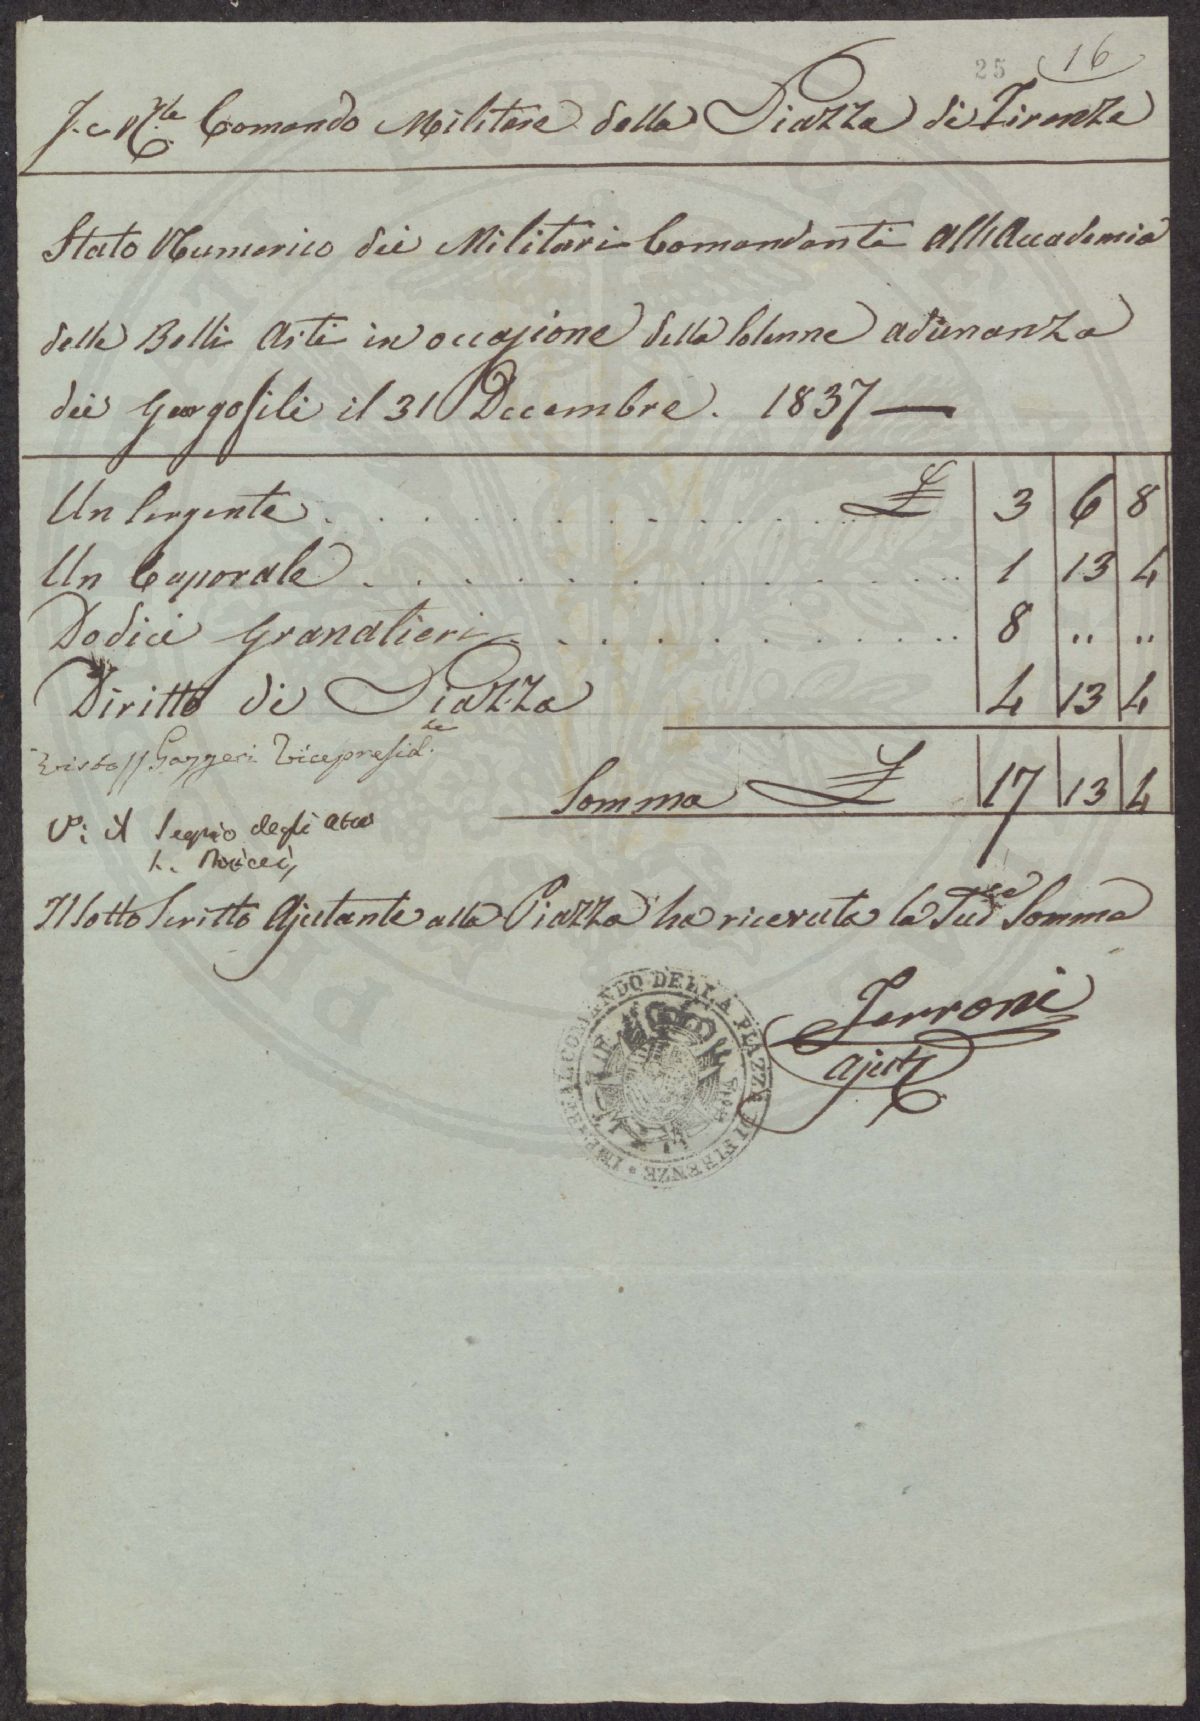 25 16
I. e R.le Comando Militare della Piazza di Firenze
Stato Numerico dei Militari Comandanti all'Accademia
delle Belli Arti in occasione della Solenne adunanza
dei Georgofili il 31 Dicembre. 1837 —
Un Sergente . . . . . . . . . . . . £ 3 6 8
Un Caporale . . . . . . . . . . . . 1 13 4
Dodici Granatieri . . . . . . . . . . 8 .. ..
Diritto di Piazza 4 13 4
Visto // Gazzeri Vicepresid.te
Somma £ 17 13 4
V°: il Segrio degli Atti
Il Sotto Scritto Ajutante alla Piazza ha ricevuta la Sud.ta Somma
Ferroni
Ajute
IMPERIAL COMANDO DELLA PIAZZA DI FIRENZE